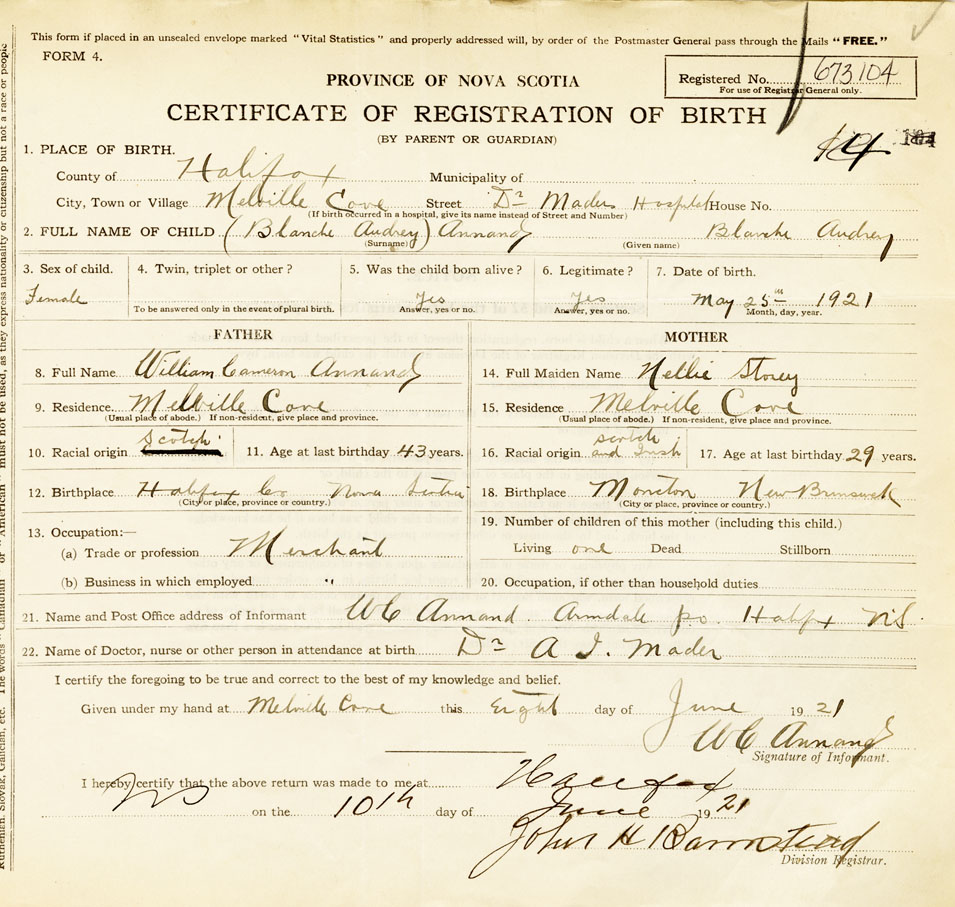 This form if placed in an unsealed envelope marked "Vital Statistics" and properly addressed will, by order of the Postmaster General pass through the Mails "FREE."
FORM 4.
PROVINCE OF NOVA SCOTIA
Registered No. 673104
For use of Registrar General only.
CERTIFICATE OF REGISTRATION OF BIRTH
(BY PARENT OR GUARDIAN)
1. PLACE OF BIRTH.
County of Halifax Municipality of
City, Town or Village Melville Cove Street Dr Maders Hospital House No.
(If birth occurred in a hospital, give its name instead of Street and Number)
2. FULL NAME OF CHILD (Blanche Audrey) Annand Blanche Audrey
(Surname) (Given name)
3. Sex of child. 4. Twin, triplet or other? 5. Was the child born alive? 6. Legitimate? 7. Date of birth.
Female Yes Yes May 25th 1921
To be answered only in the event of plural birth. Answer, yes or no. Answer, yes or no. Month, day, year.
FATHER MOTHER
8. Full Name William Cameron Annand 14. Full Maiden Name Nellie Storey
9. Residence Melville Cove 15. Residence Melville Cove
(Usual place of abode.) If non-resident, give place and province. (Usual place of abode.) If non-resident, give place and province.
10. Racial origin Scotch 11. Age at last birthday 43 years. 16. Racial origin scotch and Irish 17. Age at last birthday 29 years.
12. Birthplace Halifax Co Nova Scotia 18. Birthplace Moncton New Brunswick
(City or place, province or country.) (City or place, province or country.)
13. Occupation:— 19. Number of children of this mother (including this child.)
(a) Trade or profession Merchant Living one Dead Stillborn
(b) Business in which employed " 20. Occupation, if other than household duties
21. Name and Post Office address of Informant WC Annand. Armdale po. Halifax N.S.
22. Name of Doctor, nurse or other person in attendance at birth Dr A I. Mader
I certify the foregoing to be true and correct to the best of my knowledge and belief.
Given under my hand at Melville Cove this Eight day of June 1921
WC Annand
Signature of Informant.
I hereby certify that the above return was made to me at Halifax
NS on the 10th day of June 1921
John H Barnstead
Division Registrar.